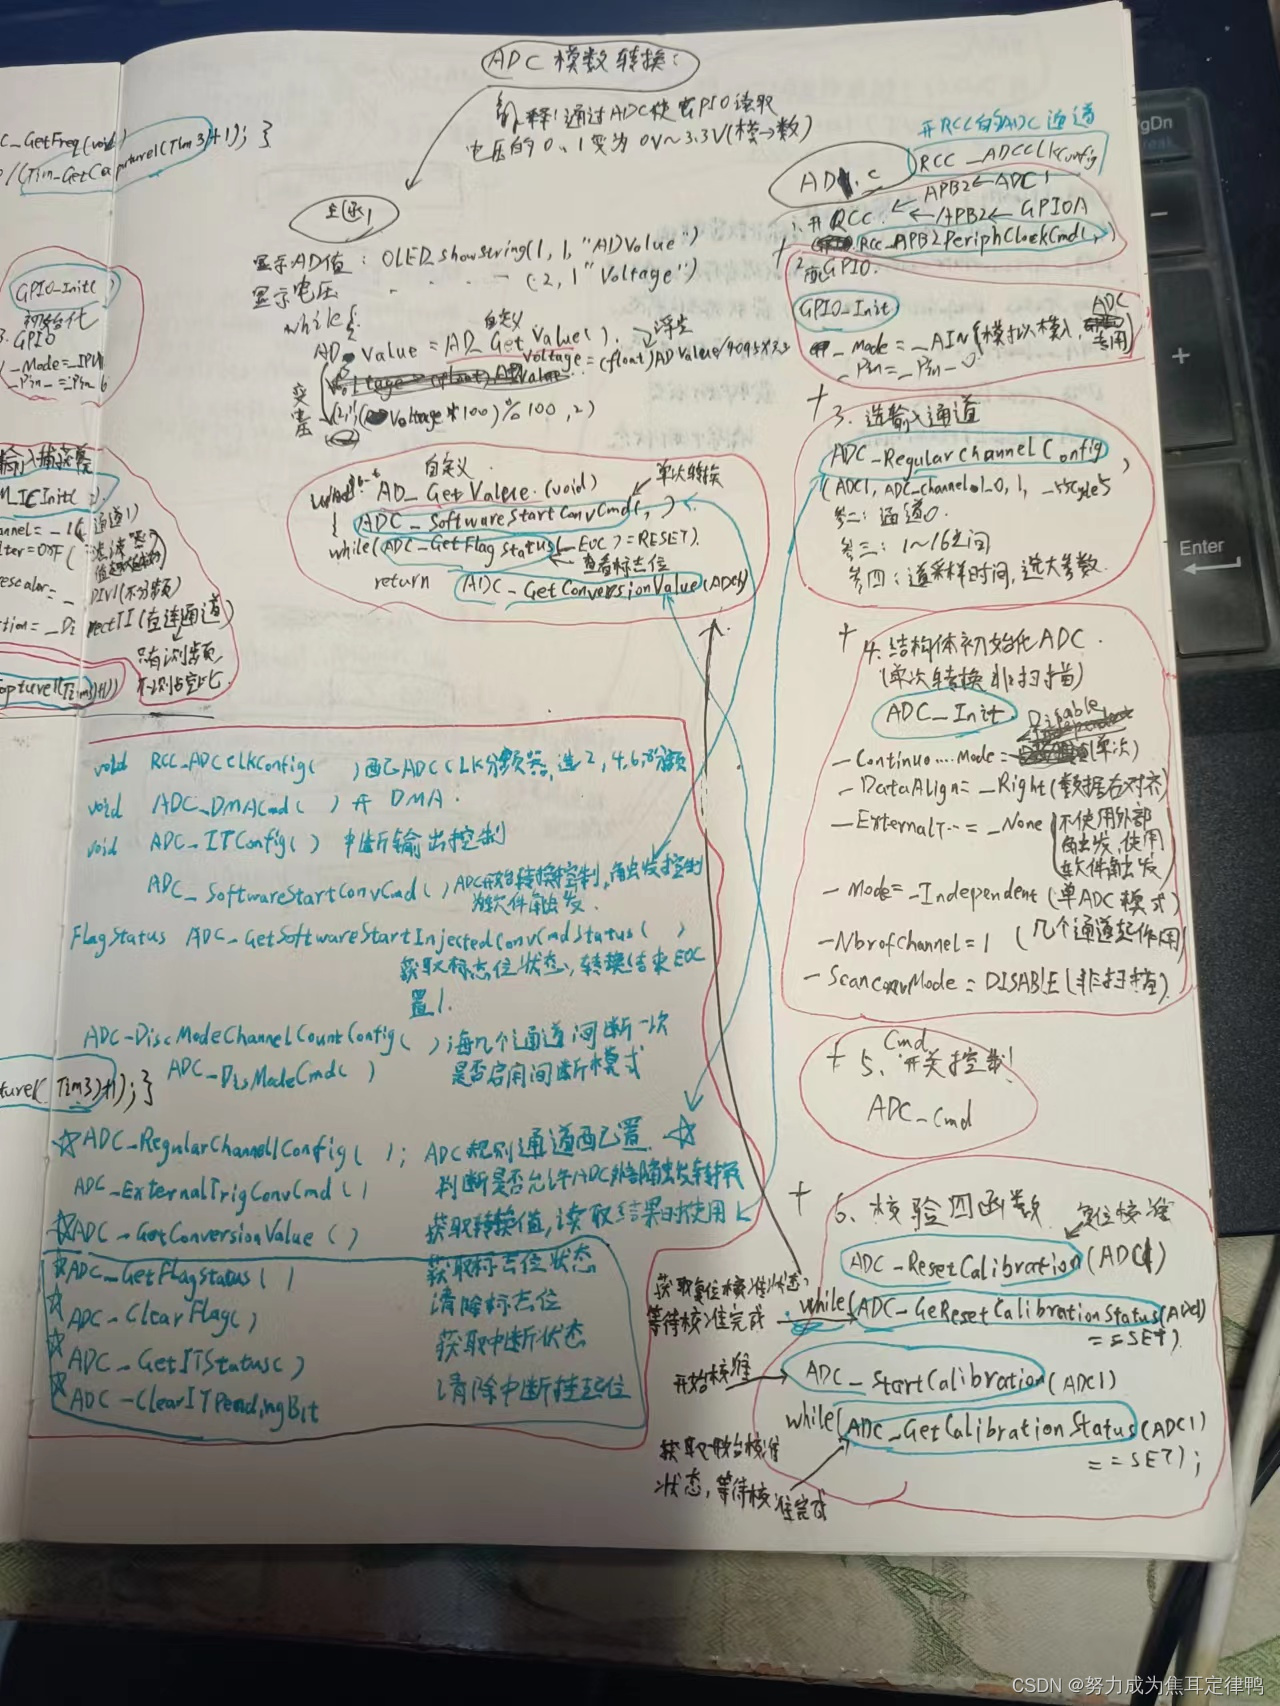 ADC 模数转换:
解释:通过ADC使GPIO读取
电压的0、1变为0V~3.3V(模→数)
C_GetFreq(void)
/(Tim_GetCapture1(Tim3)+1); }
GPIO_Init( )
初始化
3. GPIO
_Mode=_IPU
_Pin_=_Pin_6
M_ICInit( )
annel=_1(通道1)
lter=0xF(
escaler=_DIV1(不分频)
tion=_DirectTI(直连通道)
只有测频
不测占空比
apture1(Tim3)+1)
ture1( Tim3)+1); }
主函数
显示AD值: OLED_showString(1, 1, "ADValue")
显示电压 - - - - - (2, 1 "Voltage")
while{
自定义
AD_Value = AD_Get_Value( ).
浮点
Voltage=(float)ADValue/4095*3.3
(2, , (Voltage*100)%100, 2)
自定义
AD_GetValue.(void)
单次转换
{ ADC_SoftwareStartConvCmd( , )
while(ADC_GetFlagStatus(_EOC)=RESET).
查看标志位
return ADC_GetConversionValue(ADC1)
开RCC的ADC通道
RCC_ADCCLKConfig
AD.c
APB2←ADC1
1.开RCC. ←APB2←GPIOA
RCC_APB2PeriphClockCmd( , )
2 配GPIO.
GPIO_Init
_Mode=_AIN(模拟输入, ADC专用)
_Pin=_Pin_0
3. 选输入通道
ADC_RegularChannelConfig
(ADC1, ADC_channel_0, 1, _55cycle5
参二: 通道0.
参三: 1~16之间
参四: 道采样时间, 选大参数.
4.结构体初始化ADC.
(单次转换非扫描)
ADC_Init.
Disable
_Continuo....Mode= (单次)
_DataAlign=_Right(数据右对齐)
_ExternalT..=_None(不使用外部
触发,使用
软件触发)
_Mode=_Independent(单ADC模式)
_NbrofChannel=1 (几个通道起作用)
_ScanConvMode=DISABLE(非扫描)
Cmd
5. 开关控制
ADC_Cmd
6. 校验四函数
复位校准
ADC_ResetCalibration(ADC1)
获取复位校准状态,
等待校准完成
while(ADC_GeResetCalibrationStatus(ADC1)
==SET).
开始校准
ADC_StartCalibration(ADC1)
while(ADC_GetCalibrationStatus(ADC1)
==SET);
获取开始校准
状态,等待校准完成
void RCC_ADCCLKConfig( )配ADCCLK分频器,选2,4,6,8分频
void ADC_DMACmd( ) 开 DMA.
void ADC_ITConfig( ) 中断输出控制
ADC_SoftwareStartConvCmd( )ADC开始转换控制,触发控制
为软件触发.
FlagStatus ADC_GetSoftwareStartInjectedConvCmdStatus( )
获取标志位状态,转换结束EOC
置1.
ADC-DiscModeChannelCountConfig( );每几个通道间断一次
ADC_DisModeCmd( ) 是否启用间断模式
☆ADC_RegularChannelConfig( ); ADC规则通道配置 ☆
ADC_ExternalTrigConvCmd( ) 判断是否允许ADC外部触发转换
☆ADC_GetConversionValue( ) 获取转换值,读取结果时使用
☆ADC_GetFlagStatus( ) 获取标志位状态
☆ADC_ClearFlag( ) 清除标志位
☆ADC_GetITStatus( ) 获取中断状态
☆ADC_ClearITPendingBit 清除中断挂起位
PgDn
Enter
CSDN @努力成为焦耳定律鸭